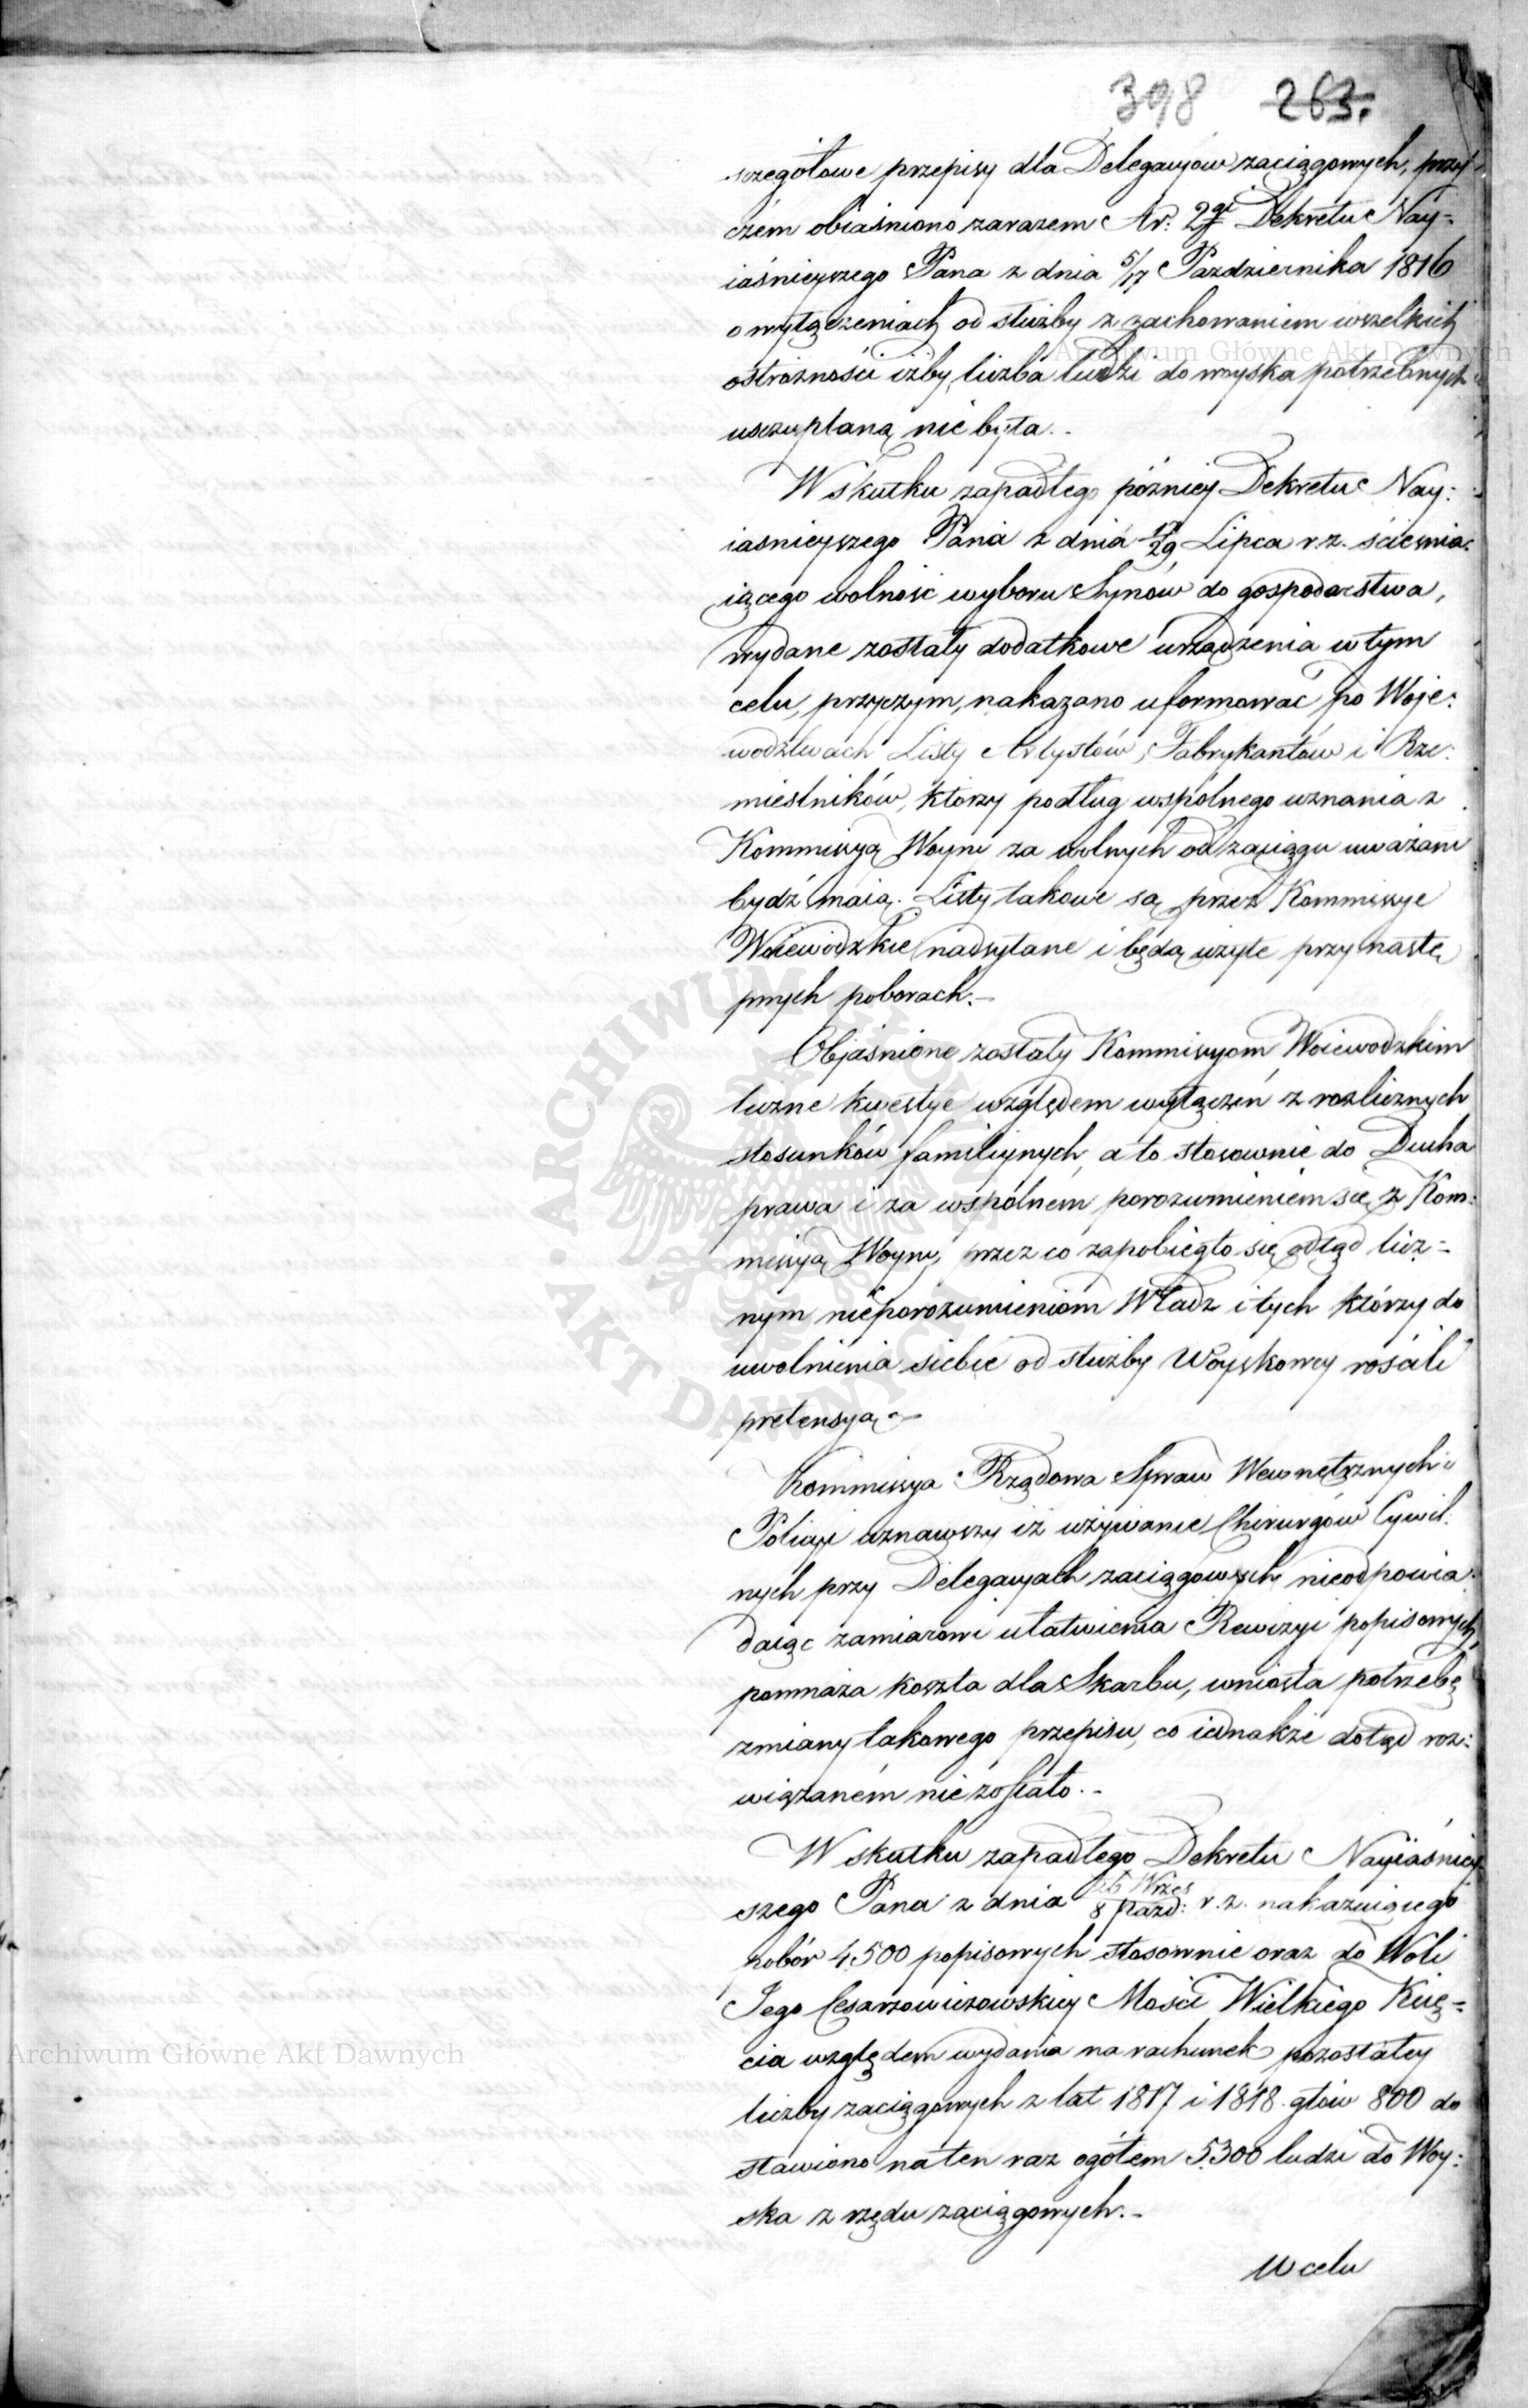 398 263.
szegółowe przepisy dla Delegacyów zaciągowych, przy
czém obiaśniono zarazem Ar: 2gi Dekretu Nay=
iaśnieyszego Pana z dnia 5/17 Pazdziernika 1816
o wyłączeniach od służby z zachowaniem wszelkich
ostrożności iżby liczba ludzi do woyska potrzebnych
uszczuplaną nie była.-
W skutku zapadłego późniey Dekretu Nay:
iasnieyszego Pana z dnia 17/29 Lipca r. z. ścieśnia:
iącego wolność wyboru Synów do gospodarstwa,
wydane zostały dodatkowe urządzenia w tym
celu, przyczym, nakazano uformować po Woje:
wodztwach Listy Artystów, Fabrykantów i Rze:
mieslników, którzy podług wspólnego uznania z
Kommissyą Woyny za wolnych od zaciągu uważani
bydź maią. Listy takowe są przez Kommissye
Woiewódzkie nadsyłane i będą użyte przy nastę
pnych poborach.-
Objaśnione zostały Kommissyom Woiewodzkim
liczne kwestye względem wyłączeń z rozlicznych
stosunków familiynych, a to stosownie do Ducha
prawa i za wspólném porozumieniem się z Kom:
missyą Woyny, przez co zapobiegło się odtąd licz=
nym nieporozumieniom Władz i tych którzy do
uwolnienia siebie od służby Woyskowey rościli
pretensyą.-
Kommissya Rządowa Spraw Wewnętrznych i
Policyi uznawszy iż używanie Chirurgów Cywil:
nych przy Delegacyach zaciągowych nieodpowia:
daiąc zamiarowi ułatwienia Rewizyi popisowych,
pomnaża koszta dla Skarbu, wniosła potrzebę
zmiany takowego przepisu, co iednakże dotąd roz:
wiązaném nie zostało.-
W skutku zapadłego Dekretu Nayiaśniey
szego Pana z dnia 26 Wrześ / 8 Pazd: r. z. nakazuiącego
pobór 4,500 popisowych stosownie oraz do Woli
Jego Cesarzowiczowskiey Mości Wielkiego Xię=
cia względem wydania na rachunek pozostałey
liczby zaciągowych z lat 1817 i 1818. głów 800 do
stawiono na ten raz ogółem 5300 ludzi do Woy:
ska z rzędu zaciągowych.-
W celu
Archiwum Główne Akt Dawnych
Archiwum Główne Akt Dawnych
ARCHIWUM GŁÓWNE • AKT DAWNYCH